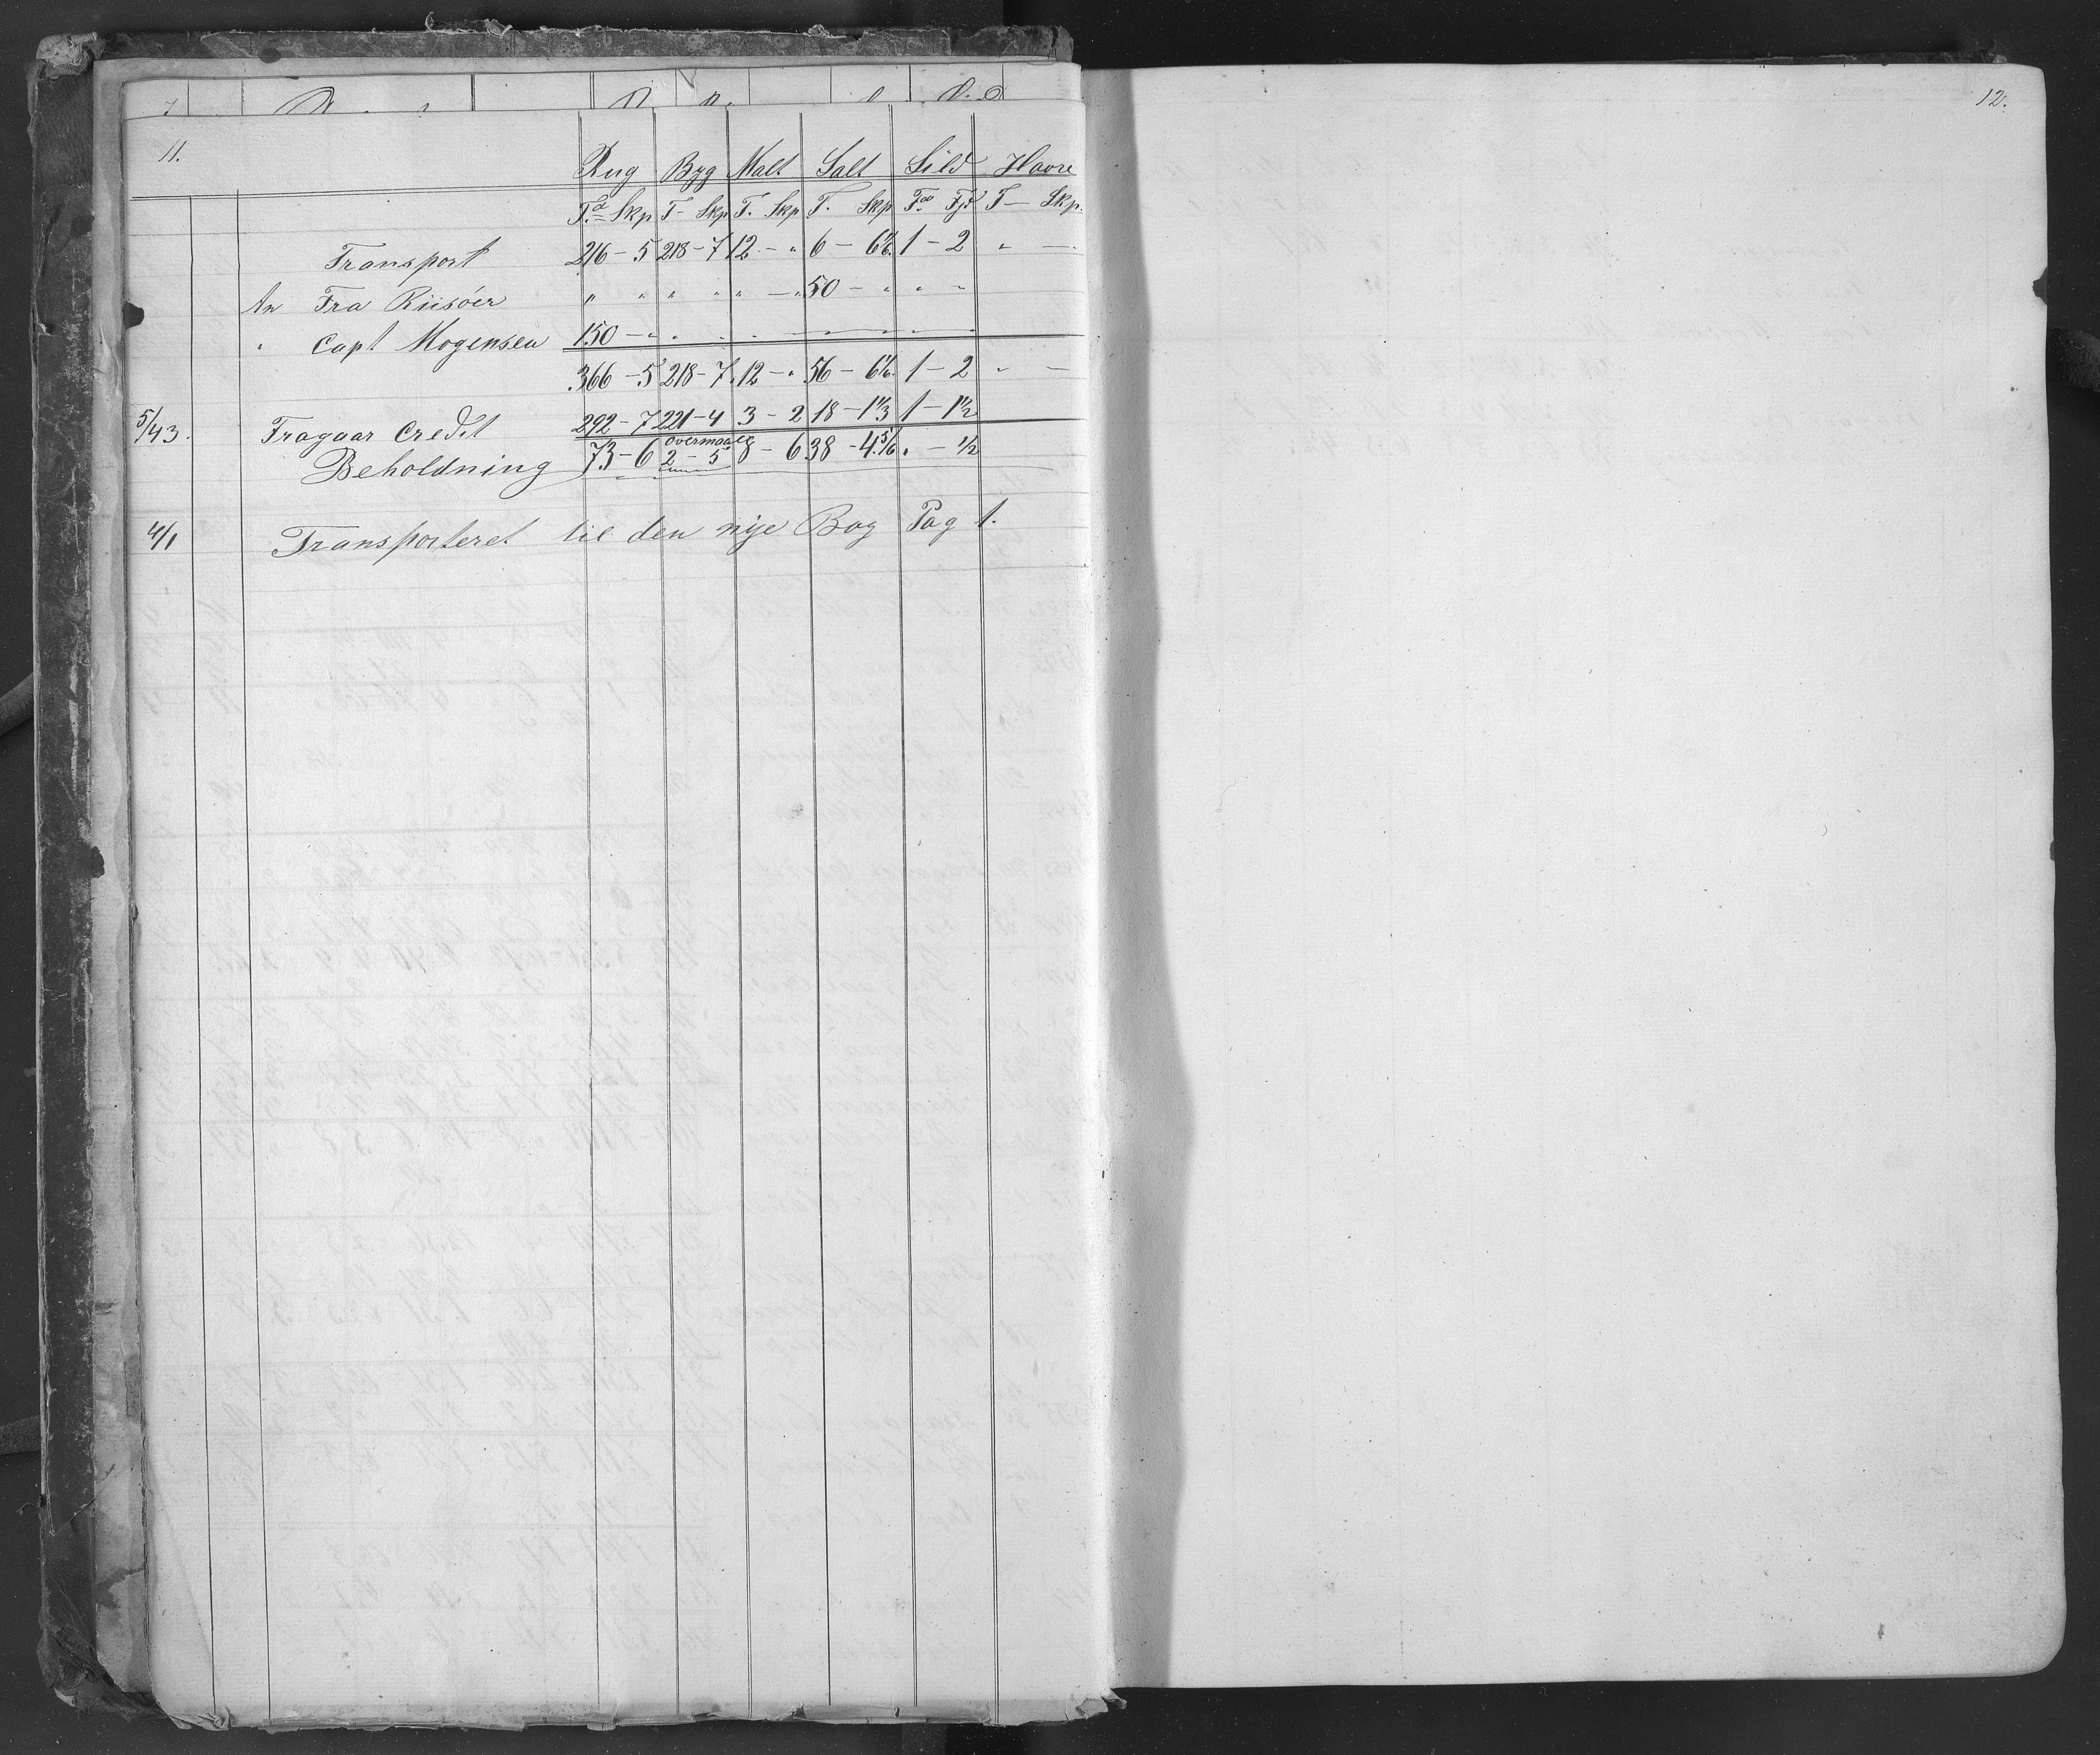 11.
Rug Byg Malt Salt Sild Havre
Td Skp T- Skp T. Skp T. Skp Fjd T- Skp.
Transport 216 - 5 218 - 7 12 - " 6 - 6 1/6 1 - 2 " -
An Fra Riisöer " " " " " - " 50 - " " "
" Capt Mogensen 150 - " " " " "
366 - 5 218 - 7 12 - " 56 - 6 1/6 1 - 2 " -
5/43. Fragaar Credit 292 - 7 221 - 4 3 - 2 18 - 1 1/3 1 - 1 1/2
Beholdning 73 - 6 overmaal 2 - 5 8 - 6 38 - 4 5/6 " - 1/2
4/1 Transporteret til den nye Bog Pag 1.
12.